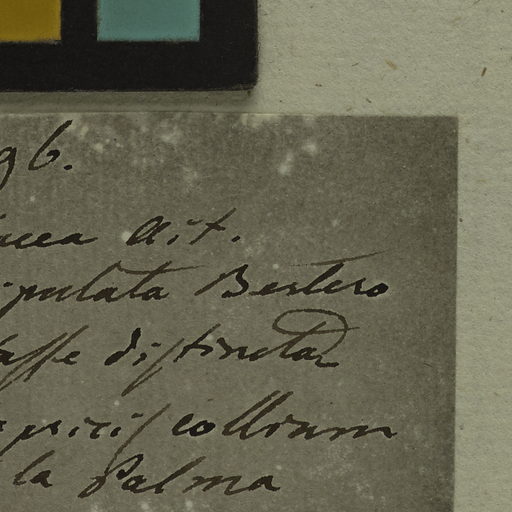 96.
acea Ait.
ipulata Bertero
asse distinctam
apricis collium
la Palma